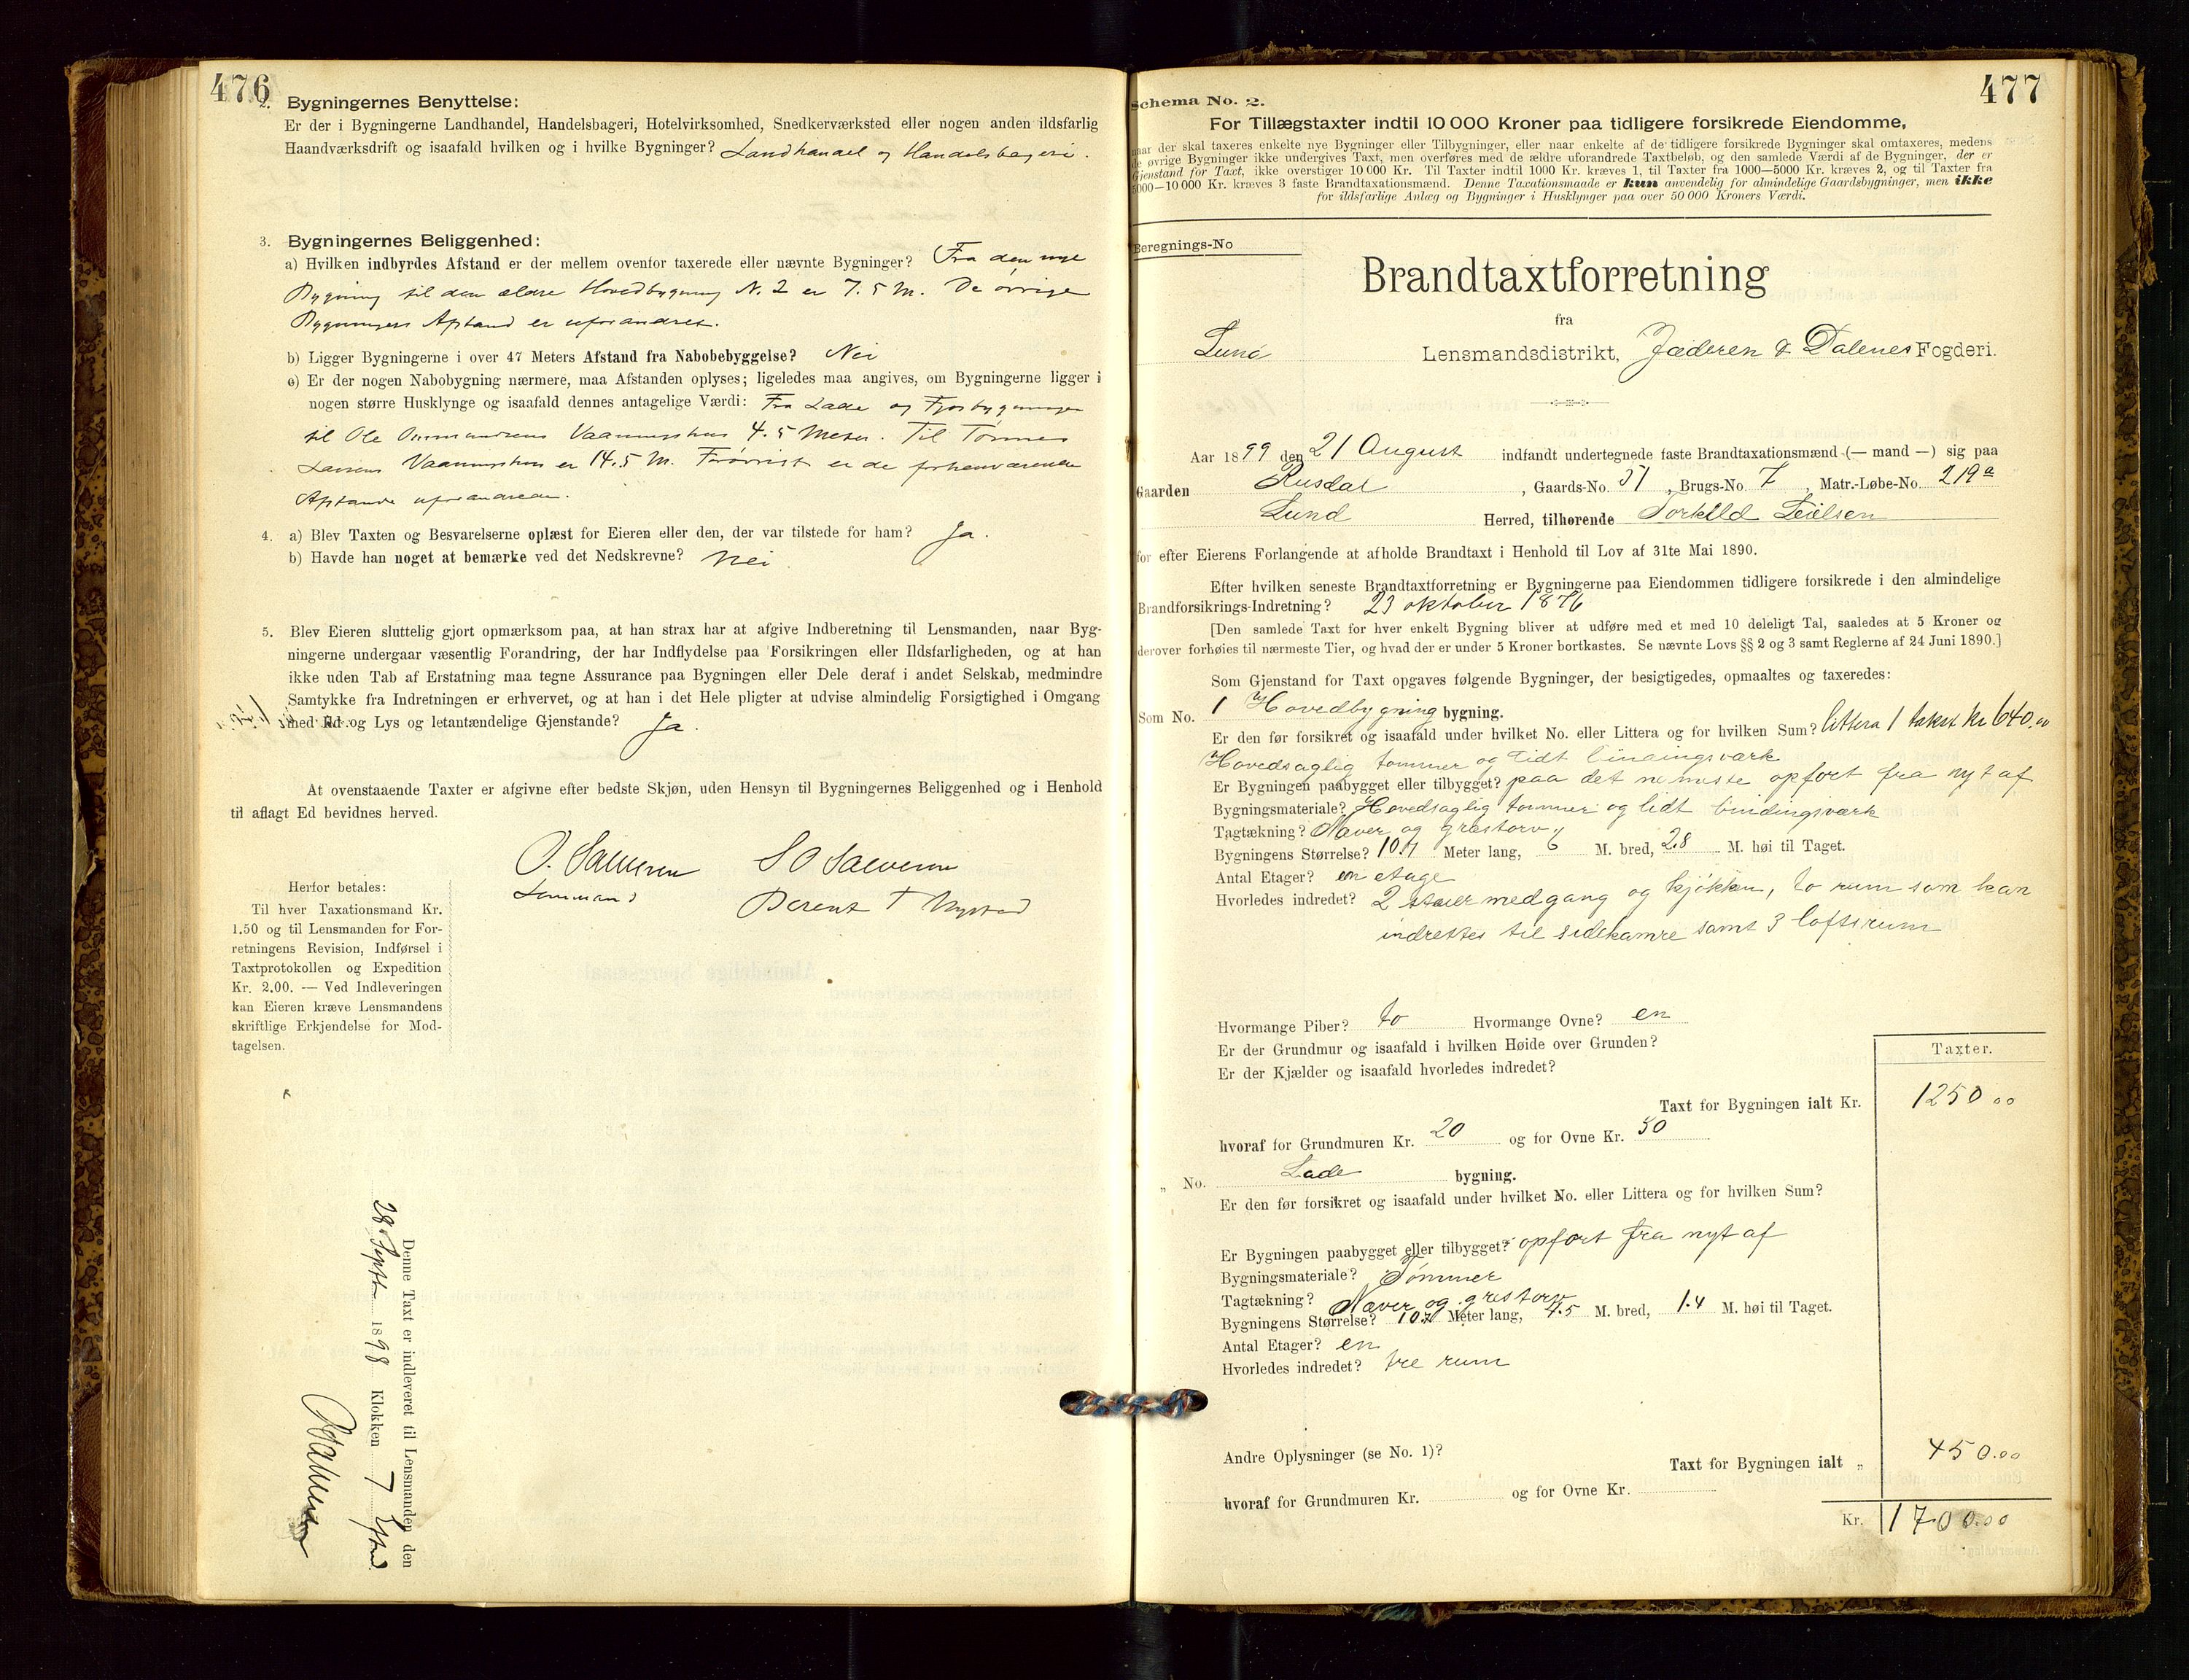 476
2. Bygningernes Benyttelse:
Er der i Bygningerne Landhandel, Handelsbageri, Hotelvirksomhed, Snedkerværksted eller nogen anden ildsfarlig
Haandværksdrift og isaafald hvilken og i hvilke Bygninger? Landhandel og Handelsbageri.
3. Bygningernes Beliggenhed:
a) Hvilken indbyrdes Afstand er der mellem ovenfor taxerede eller nævnte Bygninger? Fra den nye
Bygning til den ældre Hovedbygning N. 2 er 7.5 M. De øvrige
Bygningers Afstand er uforandret.
b) Ligger Bygningerne i over 47 Meters Afstand fra Nabobebyggelse? Nei
c) Er der nogen Nabobygning nærmere, maa Afstanden oplyses; ligeledes maa angives, om Bygningerne ligger i
nogen større Husklynge og isaafald dennes antagelige Værdi: Fra Lade og Fjøsbygningen
til Ole Vaaningshus 4.5 Meter. Til Tønnes
Larsens Vaaningshus er 14.5 M. Forøvrigt er de forhenværende
Afstande uforandrede.
4. a) Blev Taxten og Besvarelserne oplæst for Eieren eller den, der var tilstede for ham? Ja.
b) Havde han noget at bemærke ved det Nedskrevne? Nei
5. Blev Eieren sluttelig gjort opmærksom paa, at han strax har at afgive Indberetning til Lensmanden, naar Byg-
ningerne undergaar væsentlig Forandring, der har Indflydelse paa Forsikringen eller Ildsfarligheden, og at han
ikke uden Tab af Erstatning maa tegne Assurance paa Bygningen eller Dele deraf i andet Selskab, medmindre
Samtykke fra Indretningen er erhvervet, og at han i det Hele pligter at udvise almindelig Forsigtighed i Omgang
med Ild og Lys og letantændelige Gjenstande? Ja.
At ovenstaaende Taxter er afgivne efter bedste Skjøn, uden Hensyn til Bygningernes Beliggenhed og i Henhold
til aflagt Ed bevidnes herved.
O. Salvesen S O Salvesen
Lensmand Berent T Nystad
Herfor betales:
Til hver Taxationsmand Kr.
1.50 og til Lensmanden for For-
retningens Revision, Indførsel i
Taxtprotokollen og Expedition
Kr. 2.00. — Ved Indleveringen
kan Eieren kræve Lensmandens
skriftlige Erkjendelse for Mod-
tagelsen.
Denne Taxt er indleveret til Lensmanden den
28 Septbr 1898 Klokken 7 Efmd.
OSalvesen
477
Schema No. 2.
For Tillægstaxter indtil 10 000 Kroner paa tidligere forsikrede Eiendomme,
naar der skal taxeres enkelte nye Bygninger eller Tilbygninger, eller naar enkelte af de tidligere forsikrede Bygninger skal omtaxeres, medens
de øvrige Bygninger ikke undergives Taxt, men overføres med de ældre uforandrede Taxtbeløb, og den samlede Værdi af de Bygninger, der er
Gjenstand for Taxt, ikke overstiger 10 000 Kr. Til Taxter indtil 1000 Kr. kræves 1, til Taxter fra 1000—5000 Kr. kræves 2, og til Taxter fra
5000—10 000 Kr. kræves 3 faste Brandtaxationsmænd. Denne Taxationsmaade er kun anvendelig for almindelige Gaardsbygninger, men ikke
for ildsfarlige Anlæg og Bygninger i Husklynger paa over 50 000 Kroners Værdi.
Beregnings-No
Brandtaxtforretning
fra
Lund Lensmandsdistrikt, Jæderen & Dalenes Fogderi.
Aar 1899 den 21 August indfandt undertegnede faste Brandtaxationsmænd (— mand —) sig paa
Gaarden Rusdal, Gaards-No. 51, Brugs-No. 7, Matr.-Løbe-No. 219a
Lund Herred, tilhørende Torkild Leielsen
for efter Eierens Forlangende at afholde Brandtaxt i Henhold til Lov af 31te Mai 1890.
Efter hvilken seneste Brandtaxtforretning er Bygningerne paa Eiendommen tidligere forsikrede i den almindelige
Brandforsikrings-Indretning? 23 oktober 1876
[Den samlede Taxt for hver enkelt Bygning bliver at udføre med et med 10 deleligt Tal, saaledes at 5 Kroner og
derover forhøies til nærmeste Tier, og hvad der er under 5 Kroner bortkastes. Se nævnte Lovs §§ 2 og 3 samt Reglerne af 24 Juni 1890.]
Som Gjenstand for Taxt opgaves følgende Bygninger, der besigtigedes, opmaaltes og taxeredes:
Som No. 1 Hovedbygning bygning.
Er den før forsikret og isaafald under hvilket No. eller Littera og for hvilken Sum? littera 1 takst kr 640.00
Hovedsaglig tømmer og lidt bindingsværk
Er Bygningen paabygget eller tilbygget? paa det nermeste opført fra nyt af
Bygningsmateriale? Hovedsaglig tømmer og lidt bindingsværk
Tagtækning? Næver og græstorv
Bygningens Størrelse? 10.7 Meter lang, 6 M. bred, 2.8 M. høi til Taget.
Antal Etager? en etage
Hvorledes indredet? 2 stuer med gang og kjøkken, to rum som kan
indrettes til sidekamre samt 3 loftsrum
Hvormange Piber? to Hvormange Ovne? en
Er der Grundmur og isaafald i hvilken Høide over Grunden?
Er der Kjælder og isaafald hvorledes indredet?
Taxter.
Taxt for Bygningen ialt Kr. 1250 00
hvoraf for Grundmuren Kr. 20 og for Ovne Kr. 50
„ No. Lade bygning.
Er den før forsikret og isaafald under hvilket No. eller Littera og for hvilken Sum?
Er Bygningen paabygget eller tilbygget? opført fra nyt af
Bygningsmateriale? Tømmer
Tagtækning? Næver og græstorv
Bygningens Størrelse? 10.7 Meter lang, 4.5 M. bred, 1.4 M. høi til Taget.
Antal Etager? en
Hvorledes indredet? tre rum
Andre Oplysninger (se No. 1)?
Taxt for Bygningen ialt „ 450.00
hvoraf for Grundmuren Kr. og for Ovne Kr.
Kr. 1700.00